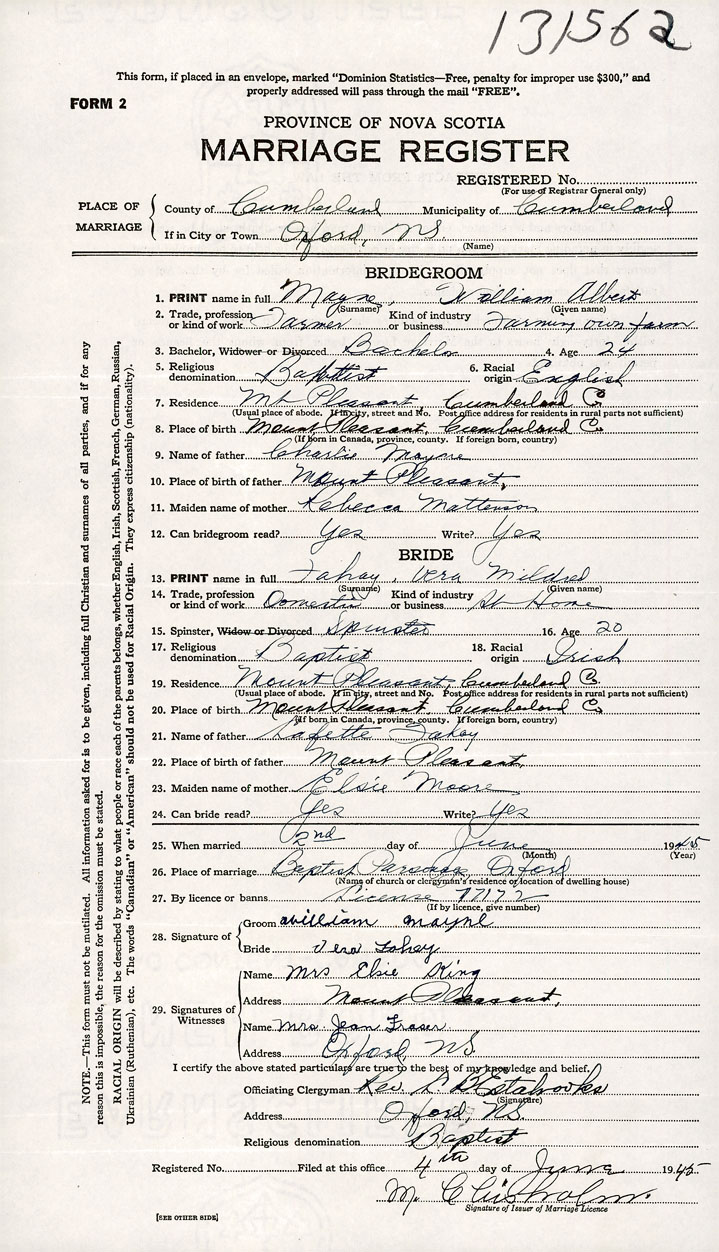 131562
This form, if placed in an envelope, marked "Dominion Statistics—Free, penalty for improper use $300," and
properly addressed will pass through the mail "FREE".
FORM 2
PROVINCE OF NOVA SCOTIA
MARRIAGE REGISTER
REGISTERED No.
(For use of Registrar General only)
PLACE OF MARRIAGE
County of Cumberland Municipality of Cumberland
If in City or Town Oxford, N.S.
(Name)
BRIDEGROOM
1. PRINT name in full Mayne, William Albert
(Surname) (Given name)
2. Trade, profession or kind of work Farmer Kind of industry or business Farming own farm
3. Bachelor, Widower or Divorced Bachelor 4. Age 24
5. Religious denomination Baptist 6. Racial origin English
7. Residence Mt Pleasant, Cumberland Co
(Usual place of abode. If in city, street and No. Post office address for residents in rural parts not sufficient)
8. Place of birth Mount Pleasant, Cumberland Co.
(If born in Canada, province, county. If foreign born, country)
9. Name of father Charlie Mayne
10. Place of birth of father Mount Pleasant,
11. Maiden name of mother Rebecca Mattinson
12. Can bridegroom read? Yes Write? Yes
BRIDE
13. PRINT name in full Fahey, Vera Mildred
(Surname) (Given name)
14. Trade, profession or kind of work Domestic Kind of industry or business At Home
15. Spinster, Widow or Divorced Spinster 16. Age 20
17. Religious denomination Baptist 18. Racial origin Irish
19. Residence Mount Pleasant, Cumberland Co.
(Usual place of abode. If in city, street and No. Post office address for residents in rural parts not sufficient)
20. Place of birth Mount Pleasant, Cumberland Co
(If born in Canada, province, county. If foreign born, country)
21. Name of father Lafette Fahey
22. Place of birth of father Mount Pleasant,
23. Maiden name of mother Elsie Moore
24. Can bride read? Yes Write? Yes
25. When married 2nd day of June 1945
(Month) (Year)
26. Place of marriage Baptist Parsonage, Oxford
(Name of church or clergyman's residence or location of dwelling house)
27. By licence or banns License 17172
(If by licence, give number)
28. Signature of
Groom william mayne
Bride Vera Fahey
29. Signatures of Witnesses
Name Mrs Elsie King
Address Mount Pleasant,
Name Mrs Jean Fraser
Address Oxford, N.S.
I certify the above stated particulars are true to the best of my knowledge and belief.
Officiating Clergyman Rev. Estabrooks
(Signature)
Address Oxford, N.S.
Religious denomination Baptist
Registered No. Filed at this office 4th day of June 1945
M. Chisholm.
Signature of Issuer of Marriage Licence
[SEE OTHER SIDE]
NOTE.—This form must not be mutilated. All information asked for is to be given, including full Christian and surnames of all parties, and if for any
reason this is impossible, the reason for the omission must be stated.
RACIAL ORIGIN will be described by stating to what people or race each of the parents belongs, whether English, Irish, Scottish, French, German, Russian,
Ukrainian (Ruthenian), etc. The words "Canadian" or "American" should not be used for Racial Origin. They express citizenship (nationality).